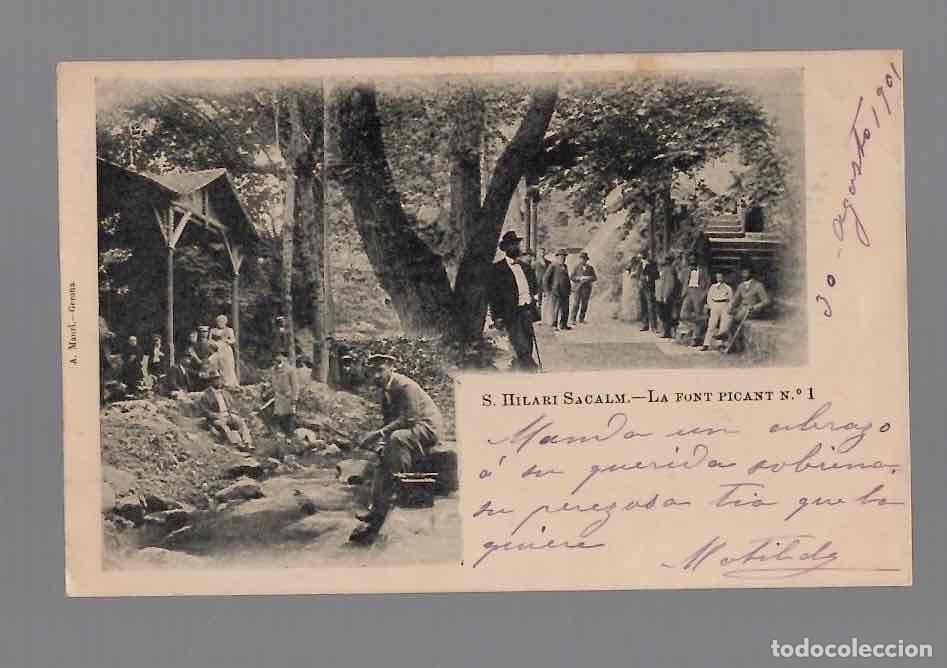 30 - agosto 1901
A. Mauri.—Gerona.
S. HILARI SACALM.—LA FONT PICANT N.º 1
Manda un abrazo
á su querida sobrina,
su perezosa tia que la
quiere
Matilde
todocoleccion
todocoleccion.net